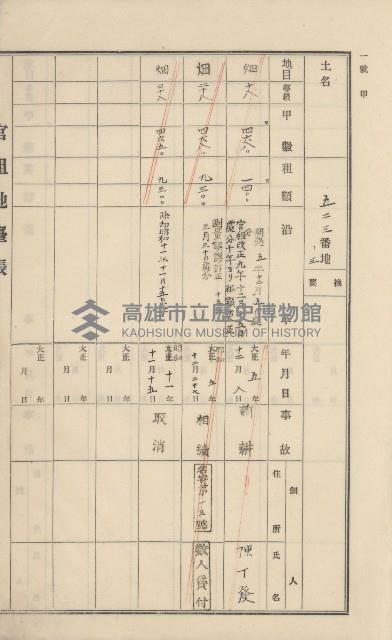 一號甲
土名
五二三番地ノ一三
摘要
地目
等級
甲數
租額
沿革
年月日
事故
個人
住所
氏名
畑
十八
四六八〇
一四〇〇
大正五年十二月八日
許耕
陳丁發
畑
二十八
四六八〇
九三〇〇
三月三十日
五年十二月二十七日
相續
名寄第一五號
數人貸付
畑
二十八
四六五〇
九三〇〇
除却昭和十一年十一月十五日
昭和十一年十一月十五日
取消
大正年月日
大正年月日
大正年月日
官租地臺帳
高雄市立歷史博物館
KAOHSIUNG MUSEUM OF HISTORY